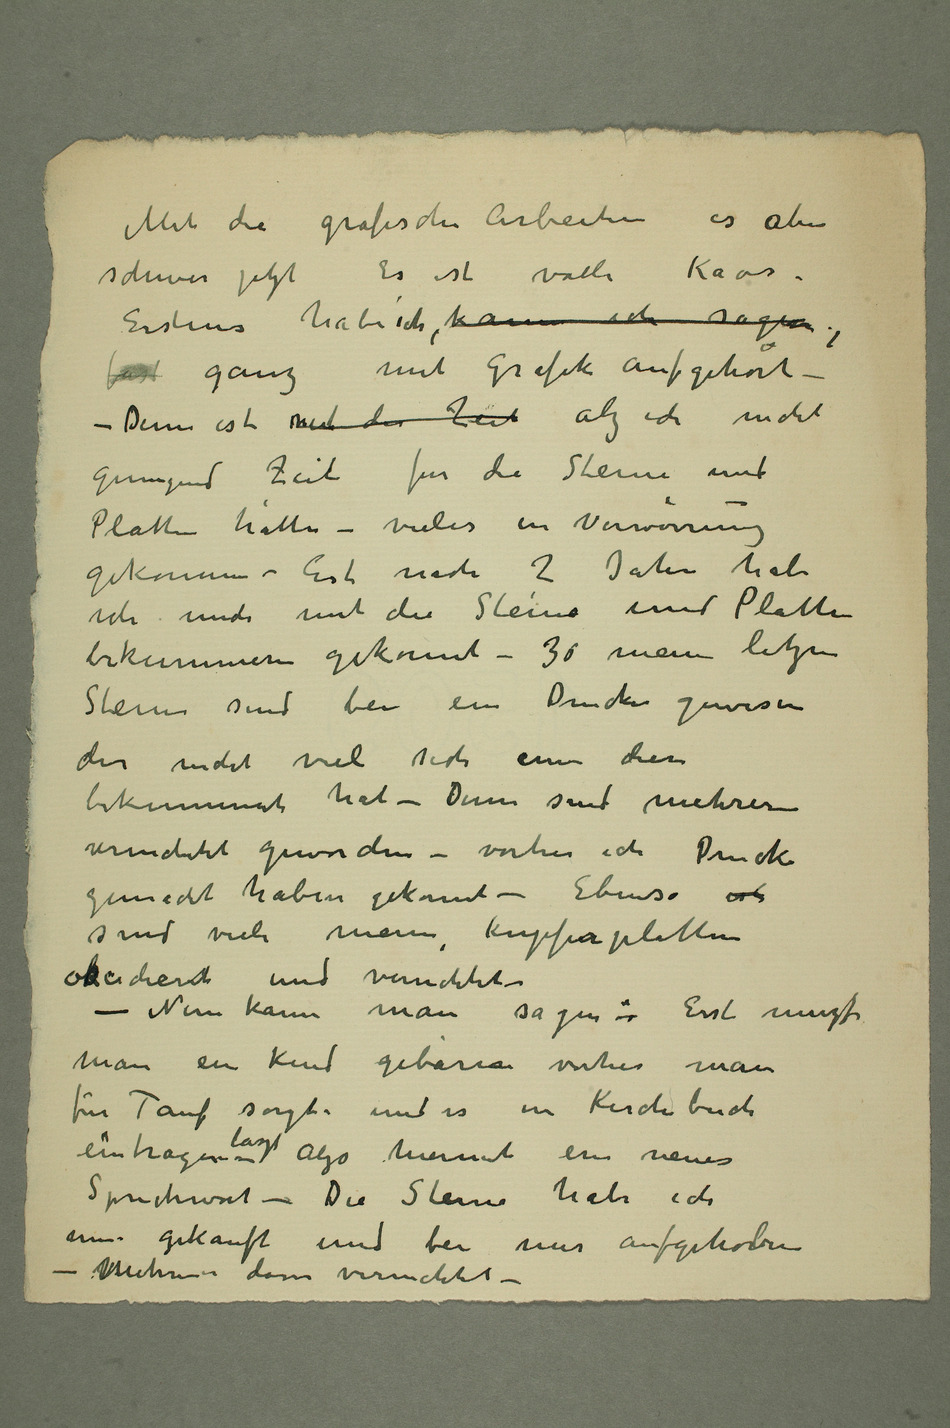 Mit die grafische Arbeiten es aber
schwer jetzt Es ist volle Kaos.
Erstens habe ich, kann ich sagen,
fast ganz mit Grafik aufgehört –
– Denn ist mit der Zeit alz ich nicht
genugend Zeit fur die Steine und
Platten hätte – vieles in Verwövrung
gekommen – Erst nach 2 Jahre habe
ich mich mit die Steine und Platten
bekummern gekonnt – 30 meine letzen
Steine sind bei ein Drucker gewesen
der nicht viel sich um die
bekummert hat – Denn sind mehrere
vernichtet geworden – vorher ich Drucke
gemacht haben gekonnt – Ebenso ist
sind viele meine, Kupferplatten
oksidiert und vernichtet –
– Nun kann man sagen: Erst muzt
man ein Kind gebären vorher man
für Tauf sorgt und es in Kirchebuch
eintragen lazt Alzo hiermit ein neues
Sprichwort – Die Steine habe ich
nun gekauft und bei mir aufgehoben
– Mehrere davon vernichtet –